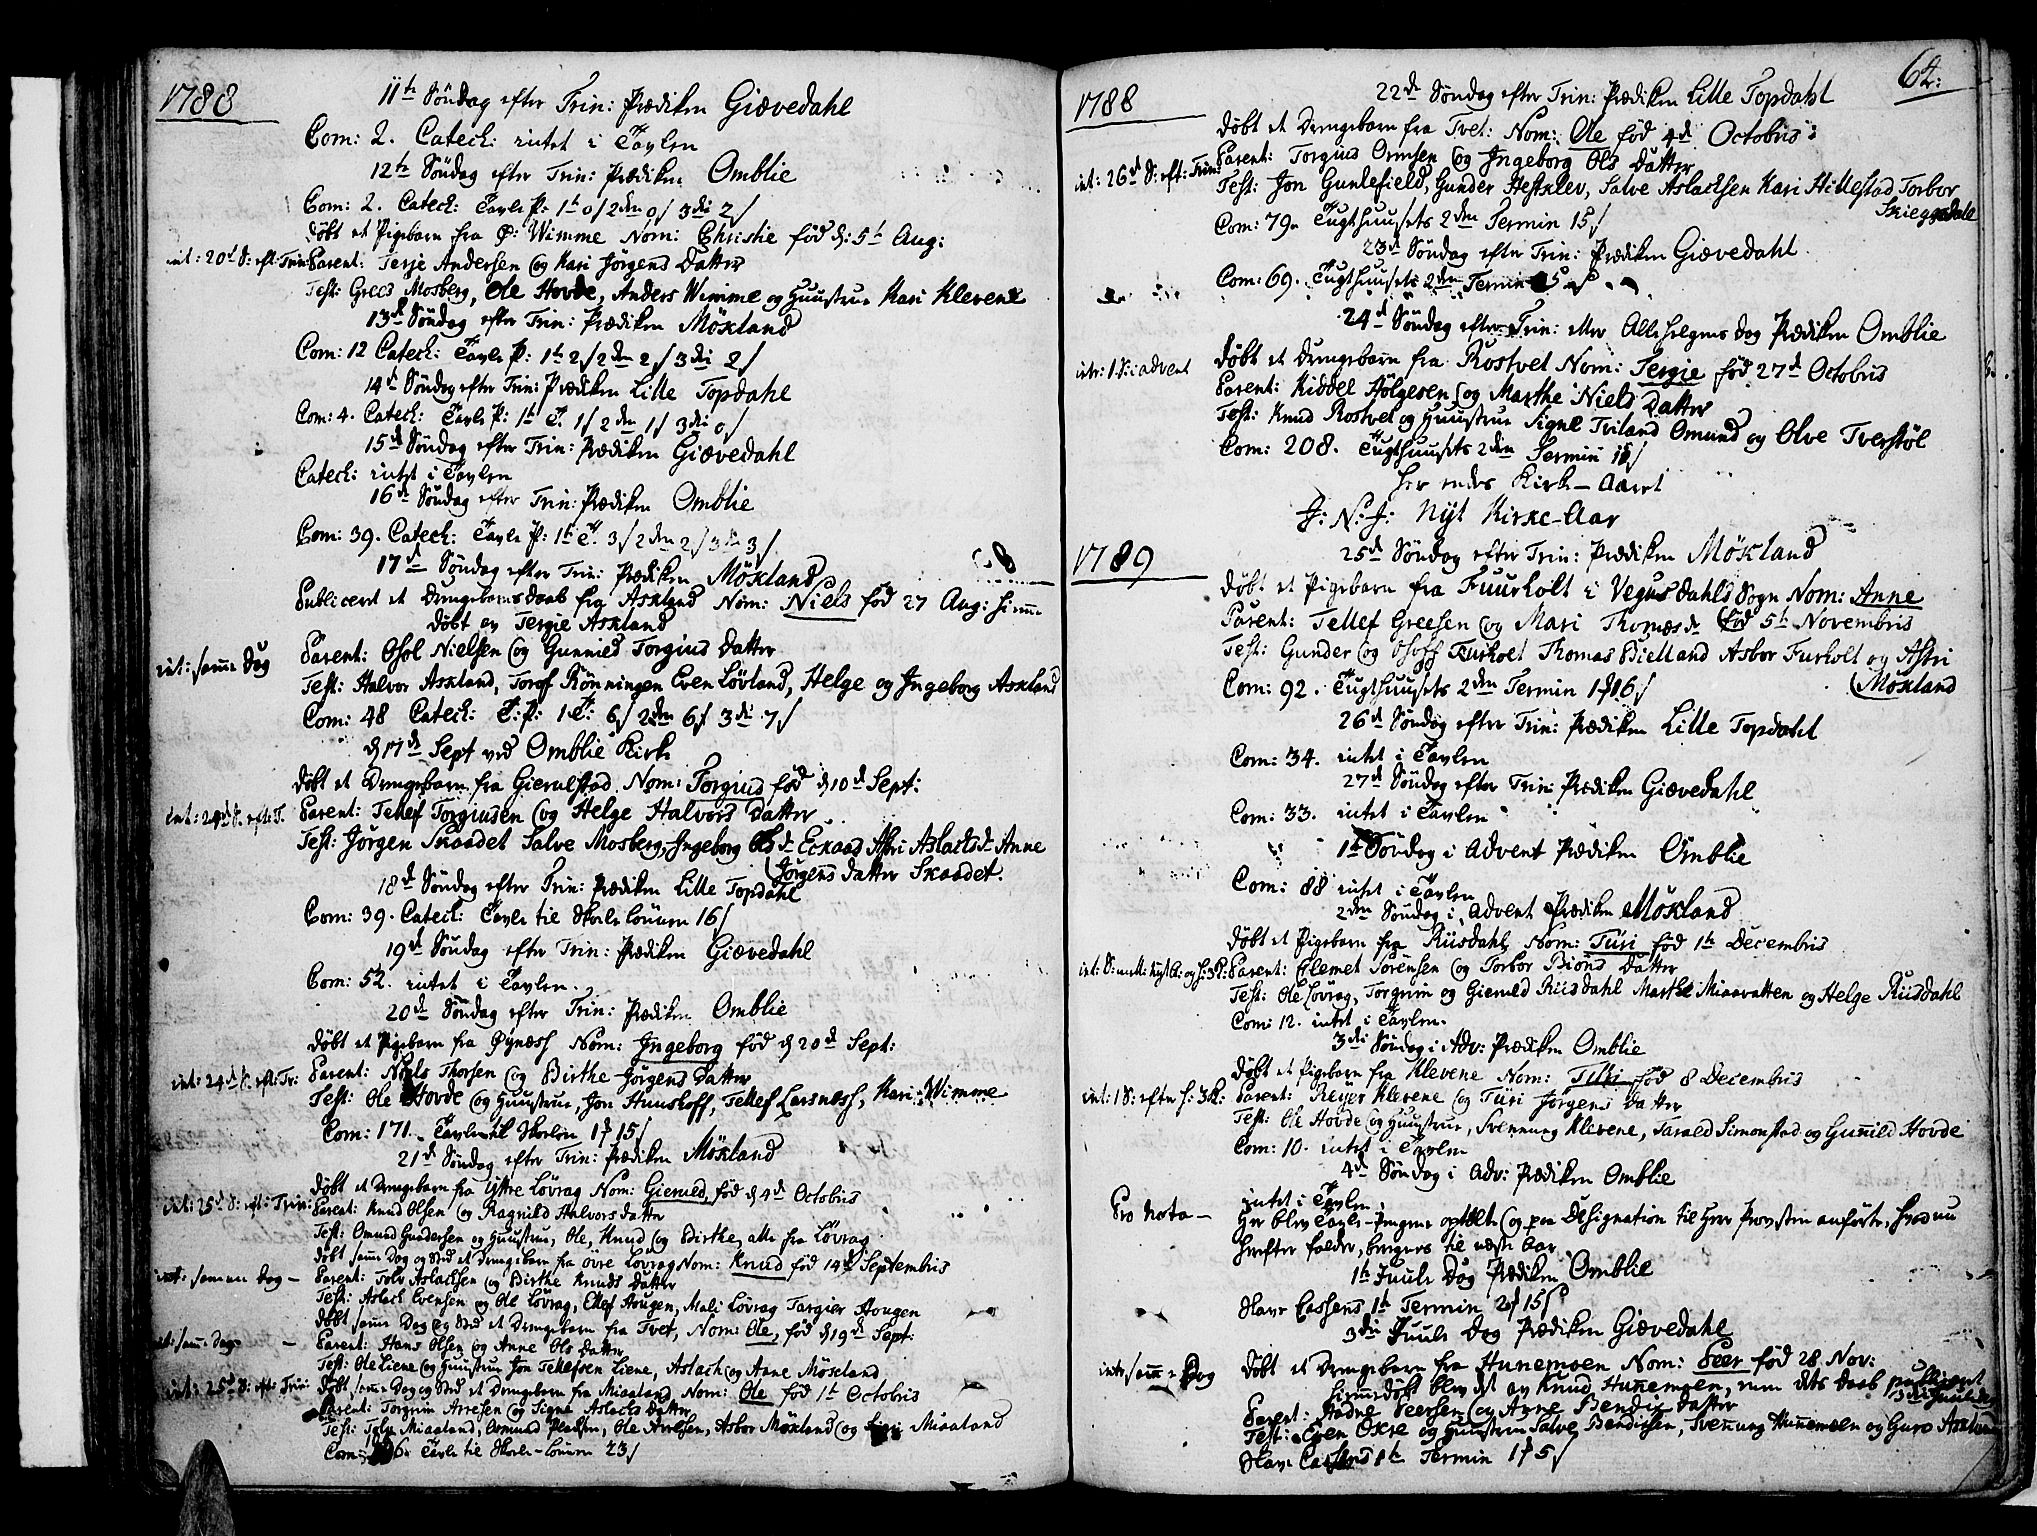 1788
11te Söndag efter Trin: Prædiken Giævedahl
Com: 2. Catech: intet i Tavlen
12te Söndag efter Trin: Prædiken Omblie
Com: 2. Catech: Tavle P: 1te 0/ 2den 0/ 3die 2/
döbt et Pigebarn fra Ø: Wimme Nom: Christie föd d: 5te Aug:
int: 20de S: eft: Trin: Parent: Terje Andersen og Kari Jörgens datter
Test: Grees Mosberg, Ole Hovde, Anders Wimme og Huustrue Kari Klevene
13de Söndag efter Trin: Prædiken Möxland
Com: 12 Catech: Tavle P: 1te 2/ 2den 2/ 3die 2/
14de Söndag efter Trin: Prædiken Lille Topdahl
Com: 4. Catech: Tavle P: 1te T. 1/ 2den 1/ 3die 0/
15de Söndag efter Trin: Prædiken Giævedahl
Catech: intet i Tavlen
16de Söndag efter Trin: Prædiken Omblie
Com: 39. Catech: Tavle P: 1te T. 3/ 2den 2/ 3die 3/
17de Söndag efter Trin: Prædiken Möxland
Publiceret et Drengebarns daab fra Axland Nom: Niels föd 27 Aug: hiemme
döbt av Tergie Axland
int: samme Dag Parent: Osol Nielsen og Gunnild Torgius datter
Test: Halvor Axland, Torof Rönningen Even Lövland, Helge og Ingeborg Axland
Com: 48 Catech: T: P: 1 T: 6/ 2den 6/ 3die 7/
d 17de Sept ved Omblie Kirke
döbt et Drengebarn fra Gierulstad Nom: Torgius föd d 10de Sept:
int: 24de S. eft: T. Parent: Tellef Torgiusen og Helge Halvors datter
Test: Jörgen Skaadet Salve Mosberg, Ingeborg Ols dr Eckaas Astri Aslachs dr Anne
Jörgens datter Skaadet.
18de Söndag efter Trin: Prædiken Lille Topdahl
Com: 39. Catech: Tavle til Skole lönnen 16/
19de Söndag efter Trin: Prædiken Giævedahl
Com: 52. intet i Tavlen.
20de Söndag efter Trin: Prædiken Omblie
döbt et Pigebarn fra Øynæss Nom: Ingeborg föd d 20de Sept:
int: 24de S. eft: Tr: Parent: Niels Thorsen og Birthe Jörgens datter
Test: Ole Hovde og Huustrue, Jon Huuskoff, Tellef Larsnæss, Kari Wimme
Com: 171. Tavle til Skolen 1 15/
21de Söndag efter Trin: Prædiken Möxland
döbt et Drengebarn fra Yttre Lövrag Nom: Gierued, föd d 4de Octobris
int: 25de S: eft: Trin: Parent: Knud Olsen og Ragnild Halvors datter
Test: Omund Gundersen og Huustrue, Ole, Knud og Birthe, alle fra Lövrag
döbt samme Dag og Sted et Drengebarn fra övre Lövrag Nom: Knud föd 14de Septembris
int: samme Dag – Parent: Tolv Aslachsen og Birthe Knuds datter
Test: Aslach Evensen og Ole Lövrag, Ellef Hougen, Mali Lövrag Targier Hougen
döbt samme Dag og Sted et Drengebarn fra Tvet, Nom: Ole, föd d 19de Sept:
int: samme Dag – Parent: Hans Olsen og Anne Ols datter
Test: Ole Liene og Huustrue Jon Tellefsen Liene, Aslach og Anne Möxland
int: 25de S: eft: Trin: döbt samme Dag og Sted et Drengebarn fra Miaaland Nom: Ole föd 1te Octobris
Parent: Torgrim Arresen og Signe Aslachs datter
Test: Miaaland, Osmund, Ole Arelsen, Asbor Möxland og Miaaland
Com: Tavle til Skole-lönnen 23/
64:
1788
22de Söndag efter Trin: Prædiken Lille Topdahl
döbt et Drengebarn fra Tvet: Nom: Ole föd 4de Octobris
int: 26de S: eft: Trin: Parent: Torgius Ormsen og Ingeborg Ols datter
Test: Jon Gunlefield, Gunder Hestklev, Salve Aslachsen Kari Hillestad Torbor
Skieggedale
Com: 79. Tugthuusets 2den Termin 15/
23de Söndag efter Trin: Prædiken Giævedahl.
Com: 69. Tugthuusets 2den Termin
24de Söndag efter Trin: eller Allehelgens dag Prædiken Omblie
döbt et Drengebarn fra Rostvet Nom: Tergie föd 27de Octobris
int: 1 S: i advent Parent: Kiddel Hölgesen og Marthe Niels datter
Test: Knud Rostvet og Huustrue Signe Triland Omund og Olve Tverstöl
Com: 208. Tugthuusets 2den Termin
Her endes Kirke-Aaret
J: N: J: Nyt Kirke-Aar
1789
25de Söndag efter Trin: Prædiken Möxland
döbt et Pigebarn fra Fuurholt i Vegusdahls Sogn Nom: Anne
Parent: Tellef Greesen og Mari Thomæs dr föd 5te Novembris
Test: Gunder og Furholt Thomas Bielland Asbor Furholt og Astri
Möxland
Com: 92. Tugthuusets 2den Termin 1 16/
26de Söndag efter Trin: Prædiken Lille Topdahl
Com: 34. intet i Tavlen
27de Söndag efter Trin: Prædiken Giævedahl
Com: 33. intet i Tavlen
1te Söndag i Advent Prædiken Omblie
Com: 88 intet i Tavlen
2den Söndag i Advent Prædiken Möxland
döbt et Pigebarn fra Riisdahl Nom: Turi föd 1te Decembris
int: S: mell: Nyt A: og H: 3K: Parent: Clemet Törensen og Torbor Biöns datter
Test: Ole Lövrag, Torgrim og Gierued Riisdahl Marthe Miaavatten og Helge Riisdahl
Com: 12. intet i Tavlen.
3die Söndag i Adv: Prædiken Omblie
döbt et Pigebarn fra Klevene Nom: föd 8 Decembris
int: 1 S: efter H: 3K: Parent: Reyer Klevene og Turi Jörgens datter
Test: Ole Hovde og Huustrue, Svennung Klevene, Tarald Simonstad og Gunild Hovde
Com: 10. intet i Tavlen
4de Söndag i Adv: Prædiken Omblie
intet i Tavlen
Pro Nota – Her blev Tavle-Pengene optælte og paa Designation til Herr Provsten anförte, hvad nu
herefter falder, beregnes til næste Aar
1te Juule Dag Prædiken Omblie
Have Cassens 1te Termin 2 15/
3die Juule Dag Prædiken Giævedahl
int: samme Dag döbt et Drengebarn fra Hunemoen Nom: Peer föd 28 Nov:
hiemmedöbt blev det av Knud Hunemoen, men dets daab publiceret
3die Juuledag
Parent: Aadne Peersen og Anne Bendix datter
Test: Even Oxre og Huustrue Salve Bendixsen, Svennung Hunemoen og Guro Axland
Have Cassens 1te Termin 1 5/